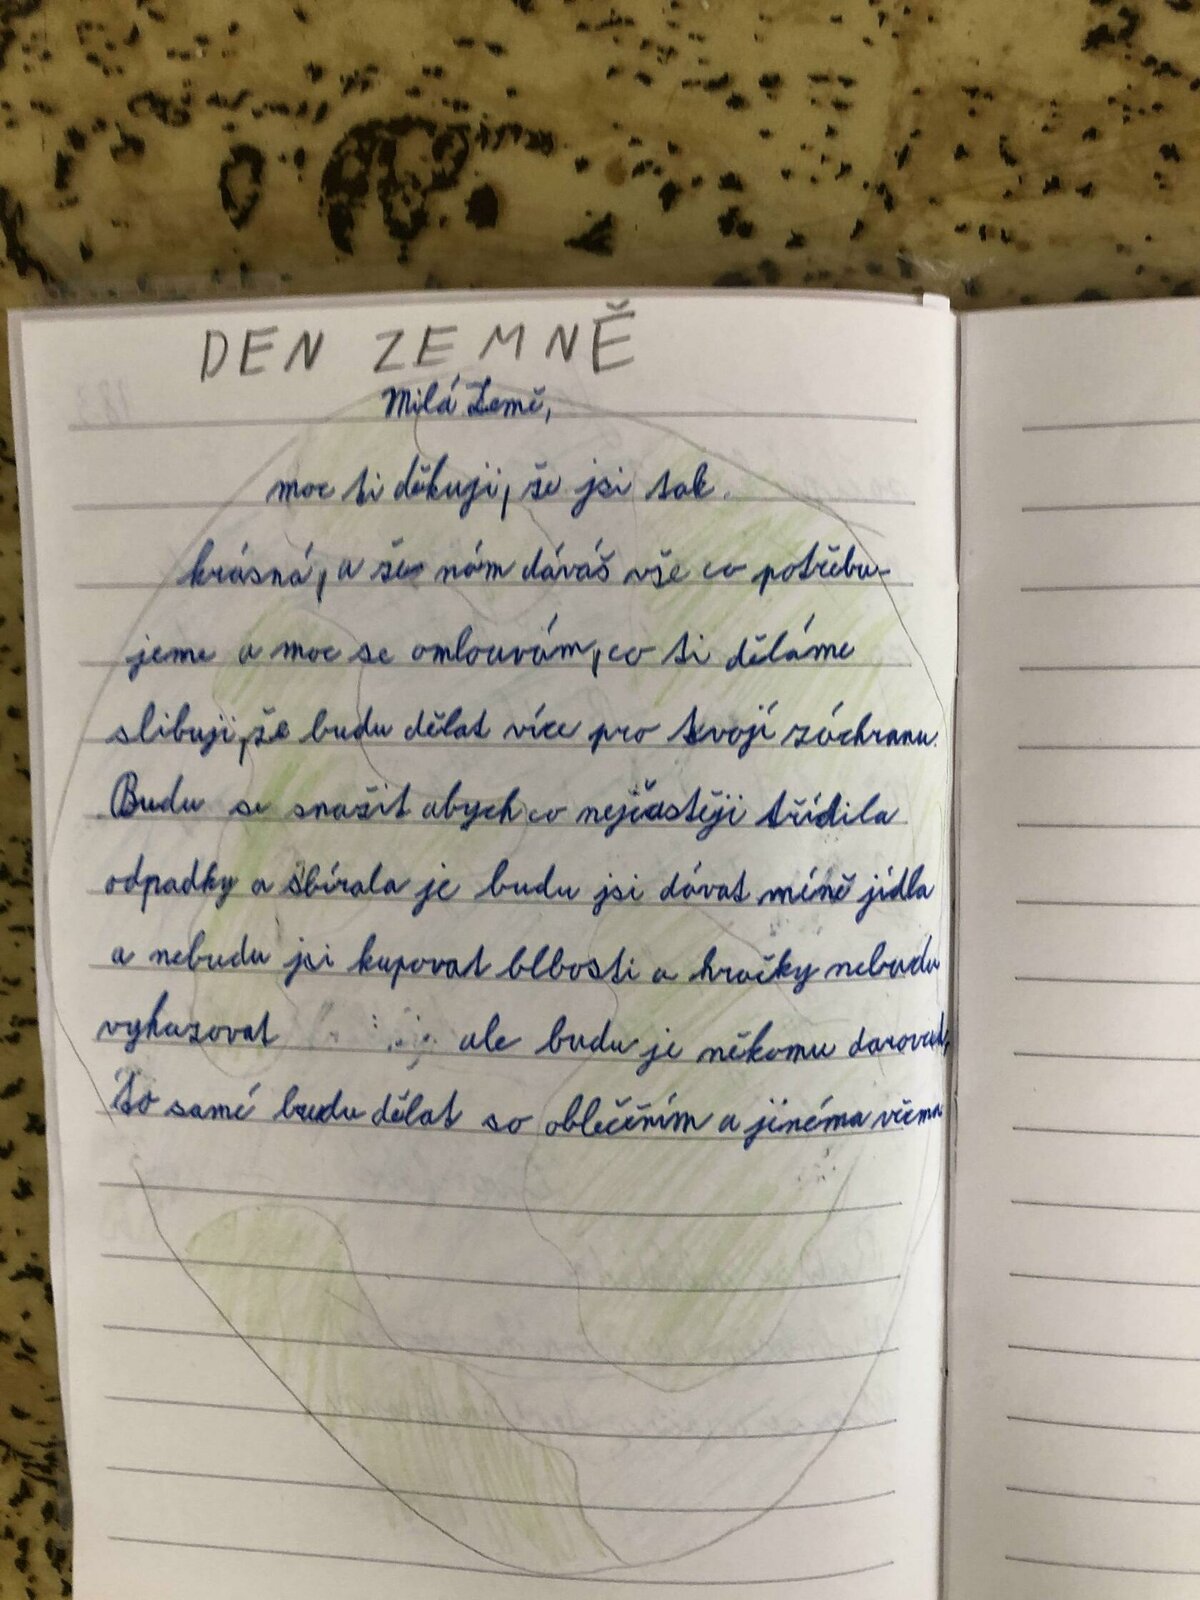 DEN ZEMNĚ
Milá Země,
moc ti děkuji, že jsi tak
krásná, a že nám dáváš vše co potřebu-
jeme a moc se omlouvám, co ti děláme
slibuji, že budu dělat více pro tvojí záchranu.
Budu se snažit abych co nejčastěji třídila
odpadky a sbírala je budu jsi dávat míně jídla
a nebudu jsi kupovat blbosti a hračky nebudu
vyhazovat ale budu je někomu darovat,
to samé budu dělat so oblečením a jinéma věcma